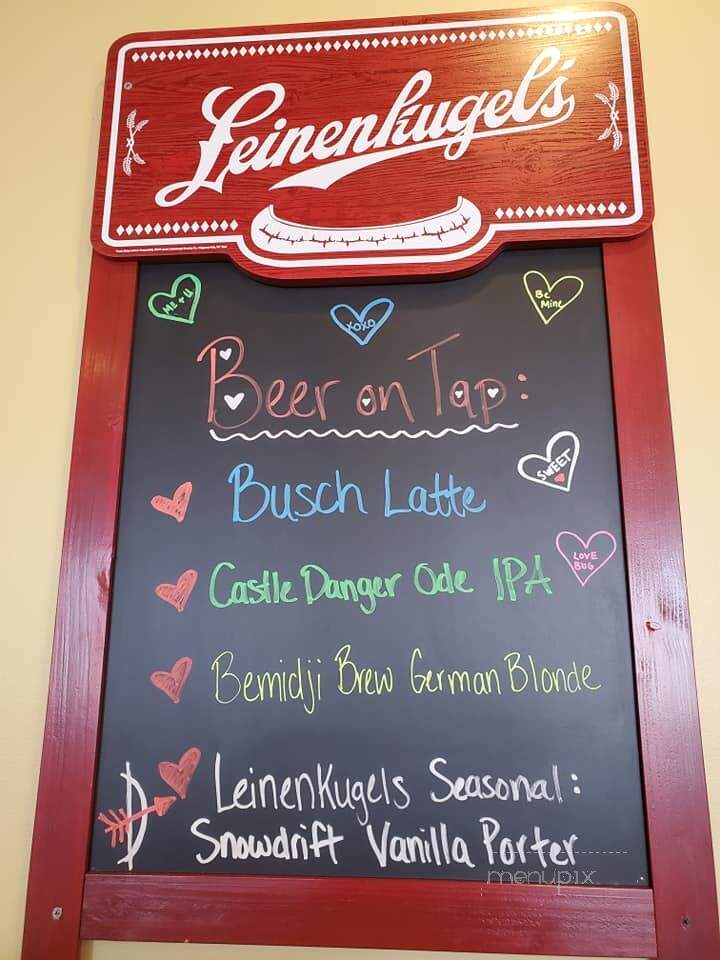 Leinenkugel's
ME + U
XOXO
Be
Mine
Beer on Tap:
SWEET
Busch Latte
LOVE
BUG
Castle Danger Ode IPA
Bemidji Brew German Blonde
Leinenkugels Seasonal:
Snowdrift Vanilla Porter
menupix